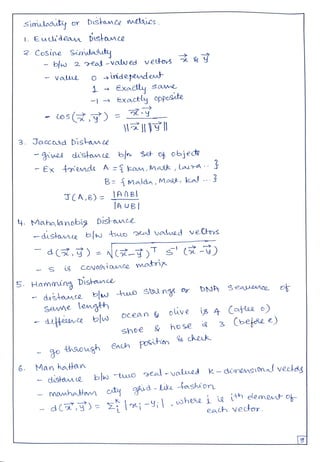 Similarity or Distance metrics.
1. Euclidean Distance
2. Cosine Similarity
- b/w 2 real-valued vectors x⃗ & y⃗
- value 0 → independent
1 → Exactly same
-1 → Exactly opposite
- cos(x⃗, y⃗) = x⃗·y⃗
||x⃗|| ||y⃗||
3. Jaccard Distance
- gives distance b/n Set of objects
- Ex friends A = { Mark, Laura .. }
B = { Mark, .. }
J(A,B) = |A∩B|
|A∪B|
4. Mahalanobis Distance
- distance b/w two real valued vectors
- d(x⃗, y⃗) = √(x⃗-y⃗)ᵀ S⁻¹ (x⃗-y⃗)
- S is covariance matrix
5. Hamming Distance
- distance b/w two strings or DNA sequence of
same length
- difference b/w ocean & olive is 4 (after o)
shoe & hose is 3 (before e)
- go through each position & check
6. Manhattan
- distance b/w two real-valued k-dimensional vectors
- manhattan city grid-like fashion
- d(x⃗, y⃗) = Σᵢᵏ |xᵢ - yᵢ|, where i is ith element of
each vector.